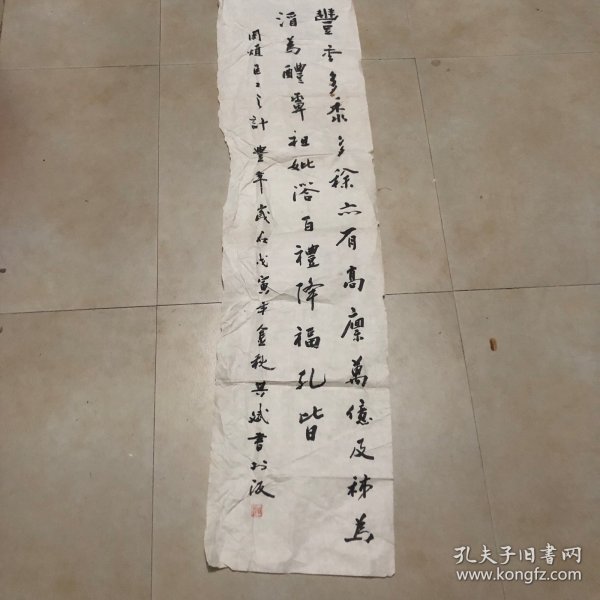 豐年多黍多稌亦有高廩萬億及秭為
酒為醴烝祖妣洽百禮降福孔皆
周頌臣工之計 豐年 歲在戊寅年金秋 書於
孔夫子旧书网
www.kongfz.com